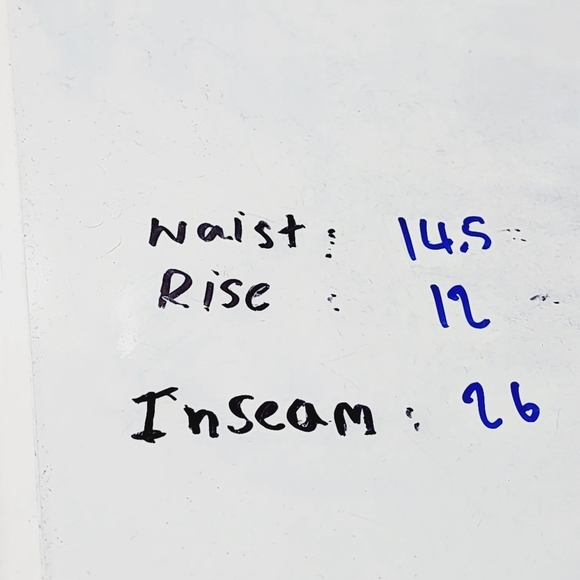 Waist : 14.5
Rise : 12
Inseam : 26